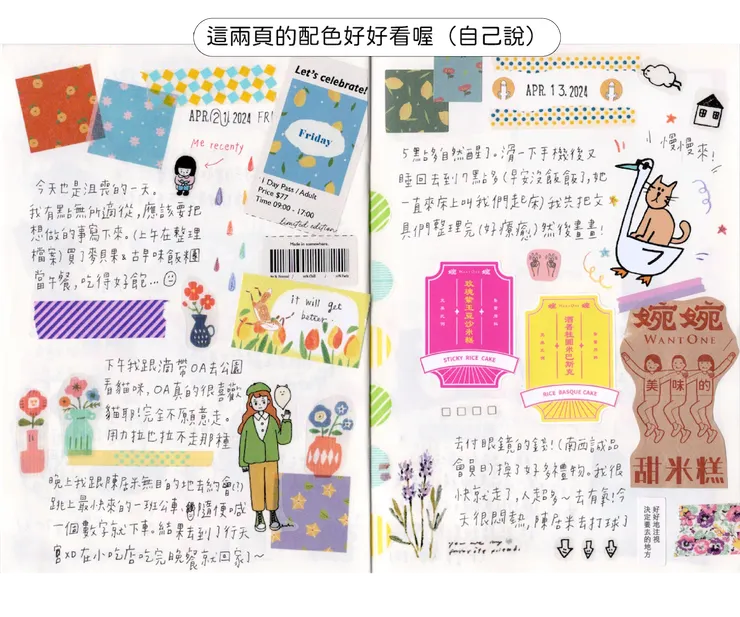 這兩頁的配色好好看喔（自己說）
APR. 21 2024 FRI
Me recently
今天也是沮喪的一天。
我有點無所適從,應該要把
想做的事寫下來。(上午在整理
檔案)買了麥貝果&古早味飯糰
當午餐,吃得好飽…
Let's celebrate!
Friday
1 Day Pass / Adult
Price $77
Time 09:00 - 17:00
Limited edition!
Made in somewhere.
it will get
better.
下午我跟滴帶OA去公園
看貓咪,OA真的很喜歡
貓耶!完全不願意走。
用力拉也拉不走那種
晚上我跟陳居米無目的地去約會(?)
跳上最快來的一班公車,隨便喊
一個數字就下車。結果去到了行天
宮xD在小吃店吃完晚餐就回家了~
APR. 13. 2024
小慢慢來!
5點多自然醒了。滑一下手機後又
睡回去到9點多(早安沒飯飯了,她
一直來床上叫我們起床)我共把文
具們整理完(好療癒)然後畫畫!
玫瑰紫玉豆沙米糕
STICKY RICE CAKE
酒香桂圓米巴斯克
RICE BASQUE CAKE
婉婉
WANTONE
美味的
甜米糕
去付眼鏡的錢!(南西誠品
會員日)換了好多禮物。我很
快就走了,人超多~去有氧!今
天很悶熱,陳居米去打球了
you are my
favorite friend.
好好地注視
決定要去的地方